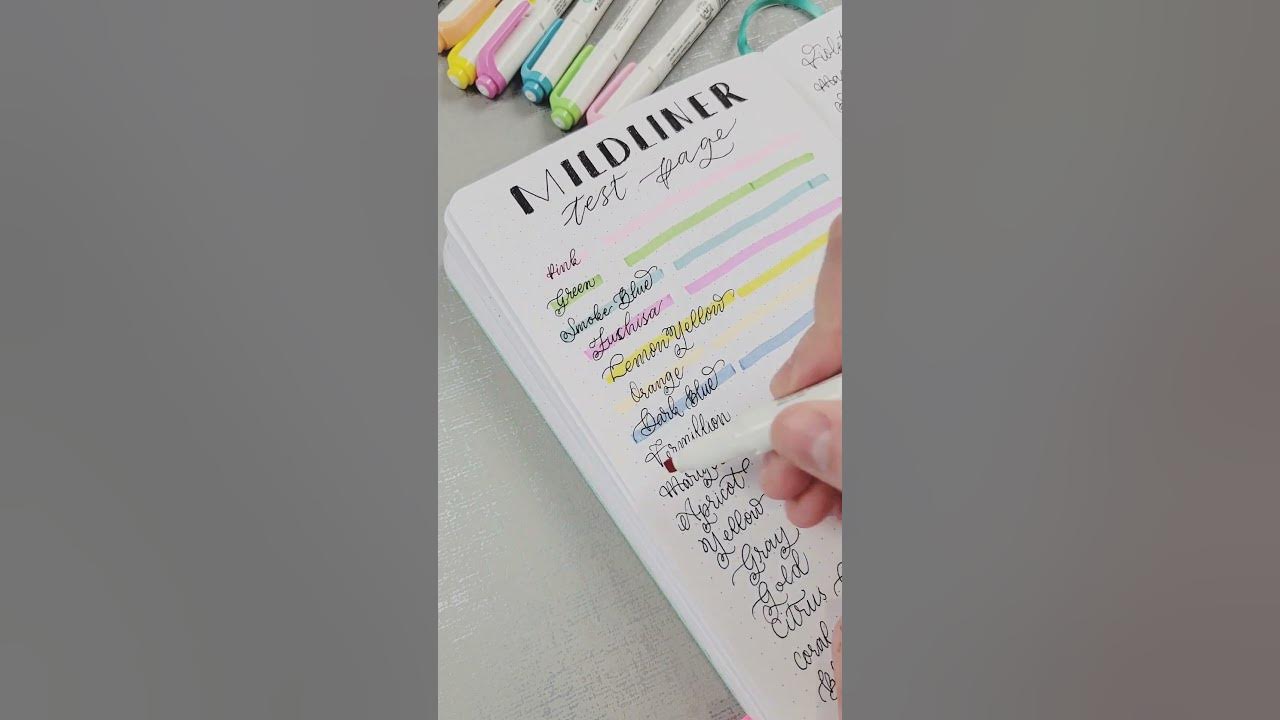 MILDLINER
test page
Pink
Green
Smoke Blue
Fuchisa
Lemon Yellow
Orange
Dark Blue
Vermillion
Apricot
Yellow
Gray
Gold
Citrus
Coral
Violet